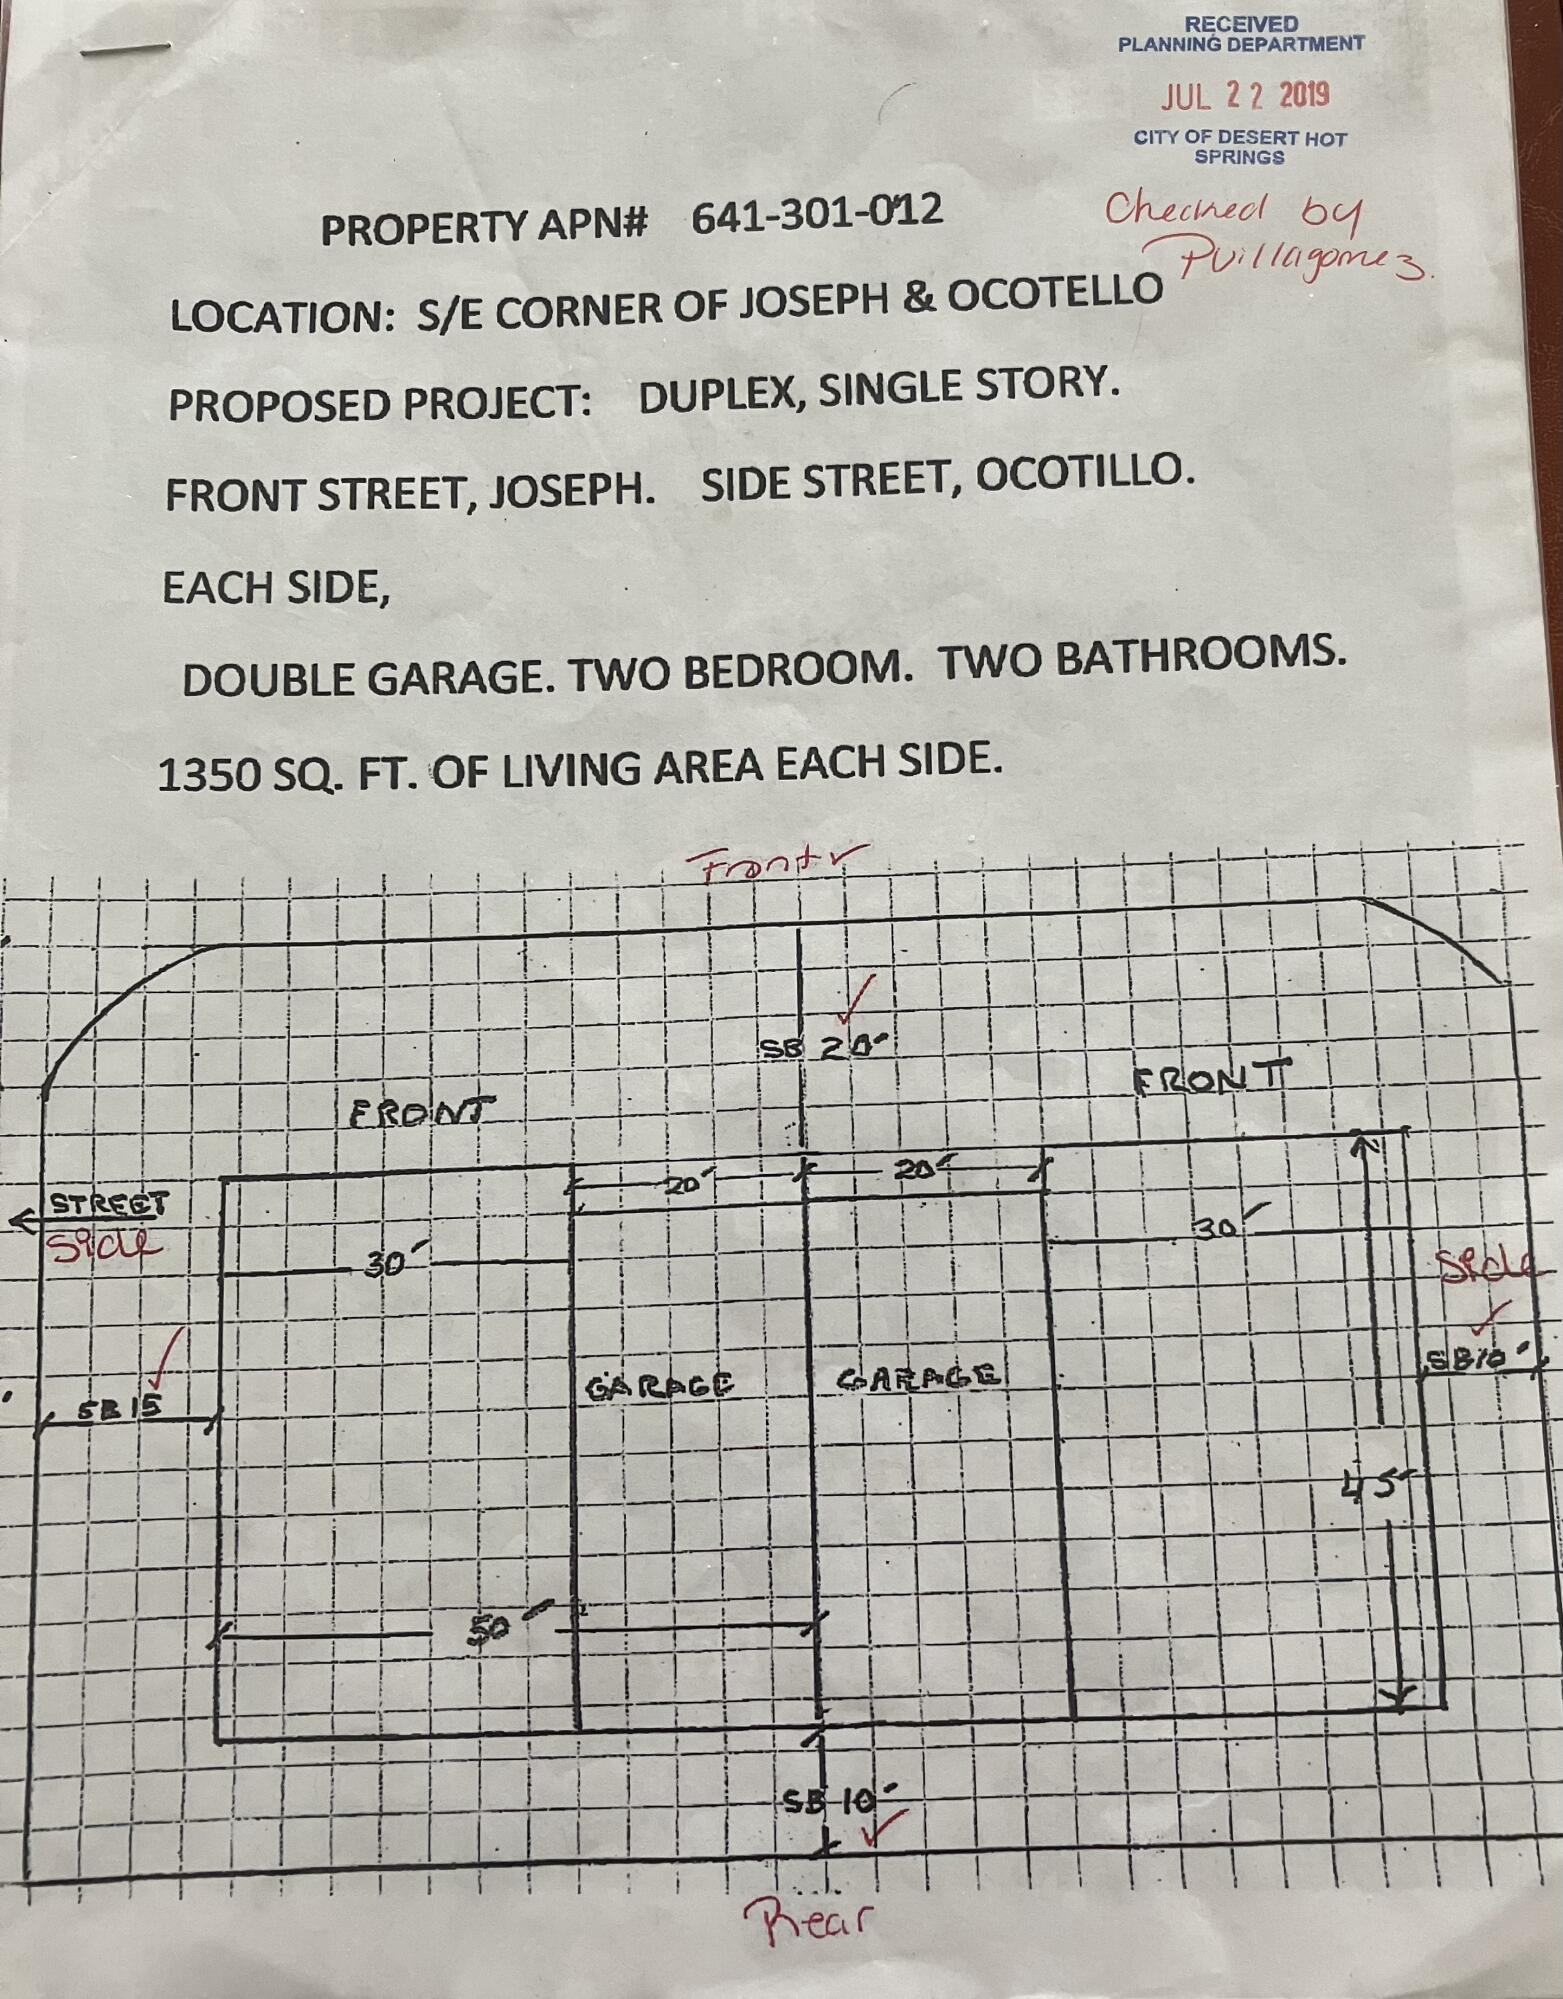 RECEIVED
PLANNING DEPARTMENT
JUL 22 2019
CITY OF DESERT HOT
SPRINGS
Checked by
PVillagomez.
PROPERTY APN# 641-301-012
LOCATION: S/E CORNER OF JOSEPH & OCOTELLO
PROPOSED PROJECT: DUPLEX, SINGLE STORY.
FRONT STREET, JOSEPH. SIDE STREET, OCOTILLO.
EACH SIDE,
DOUBLE GARAGE. TWO BEDROOM. TWO BATHROOMS.
1350 SQ. FT. OF LIVING AREA EACH SIDE.
Front ✓
✓
SB 20'
FRONT
FRONT
20'
20'
STREET
Side
30'
30'
Side
✓
✓
SB 10'
GARAGE
GARAGE
SB 15
45'
50'
SB 10'
✓
Rear